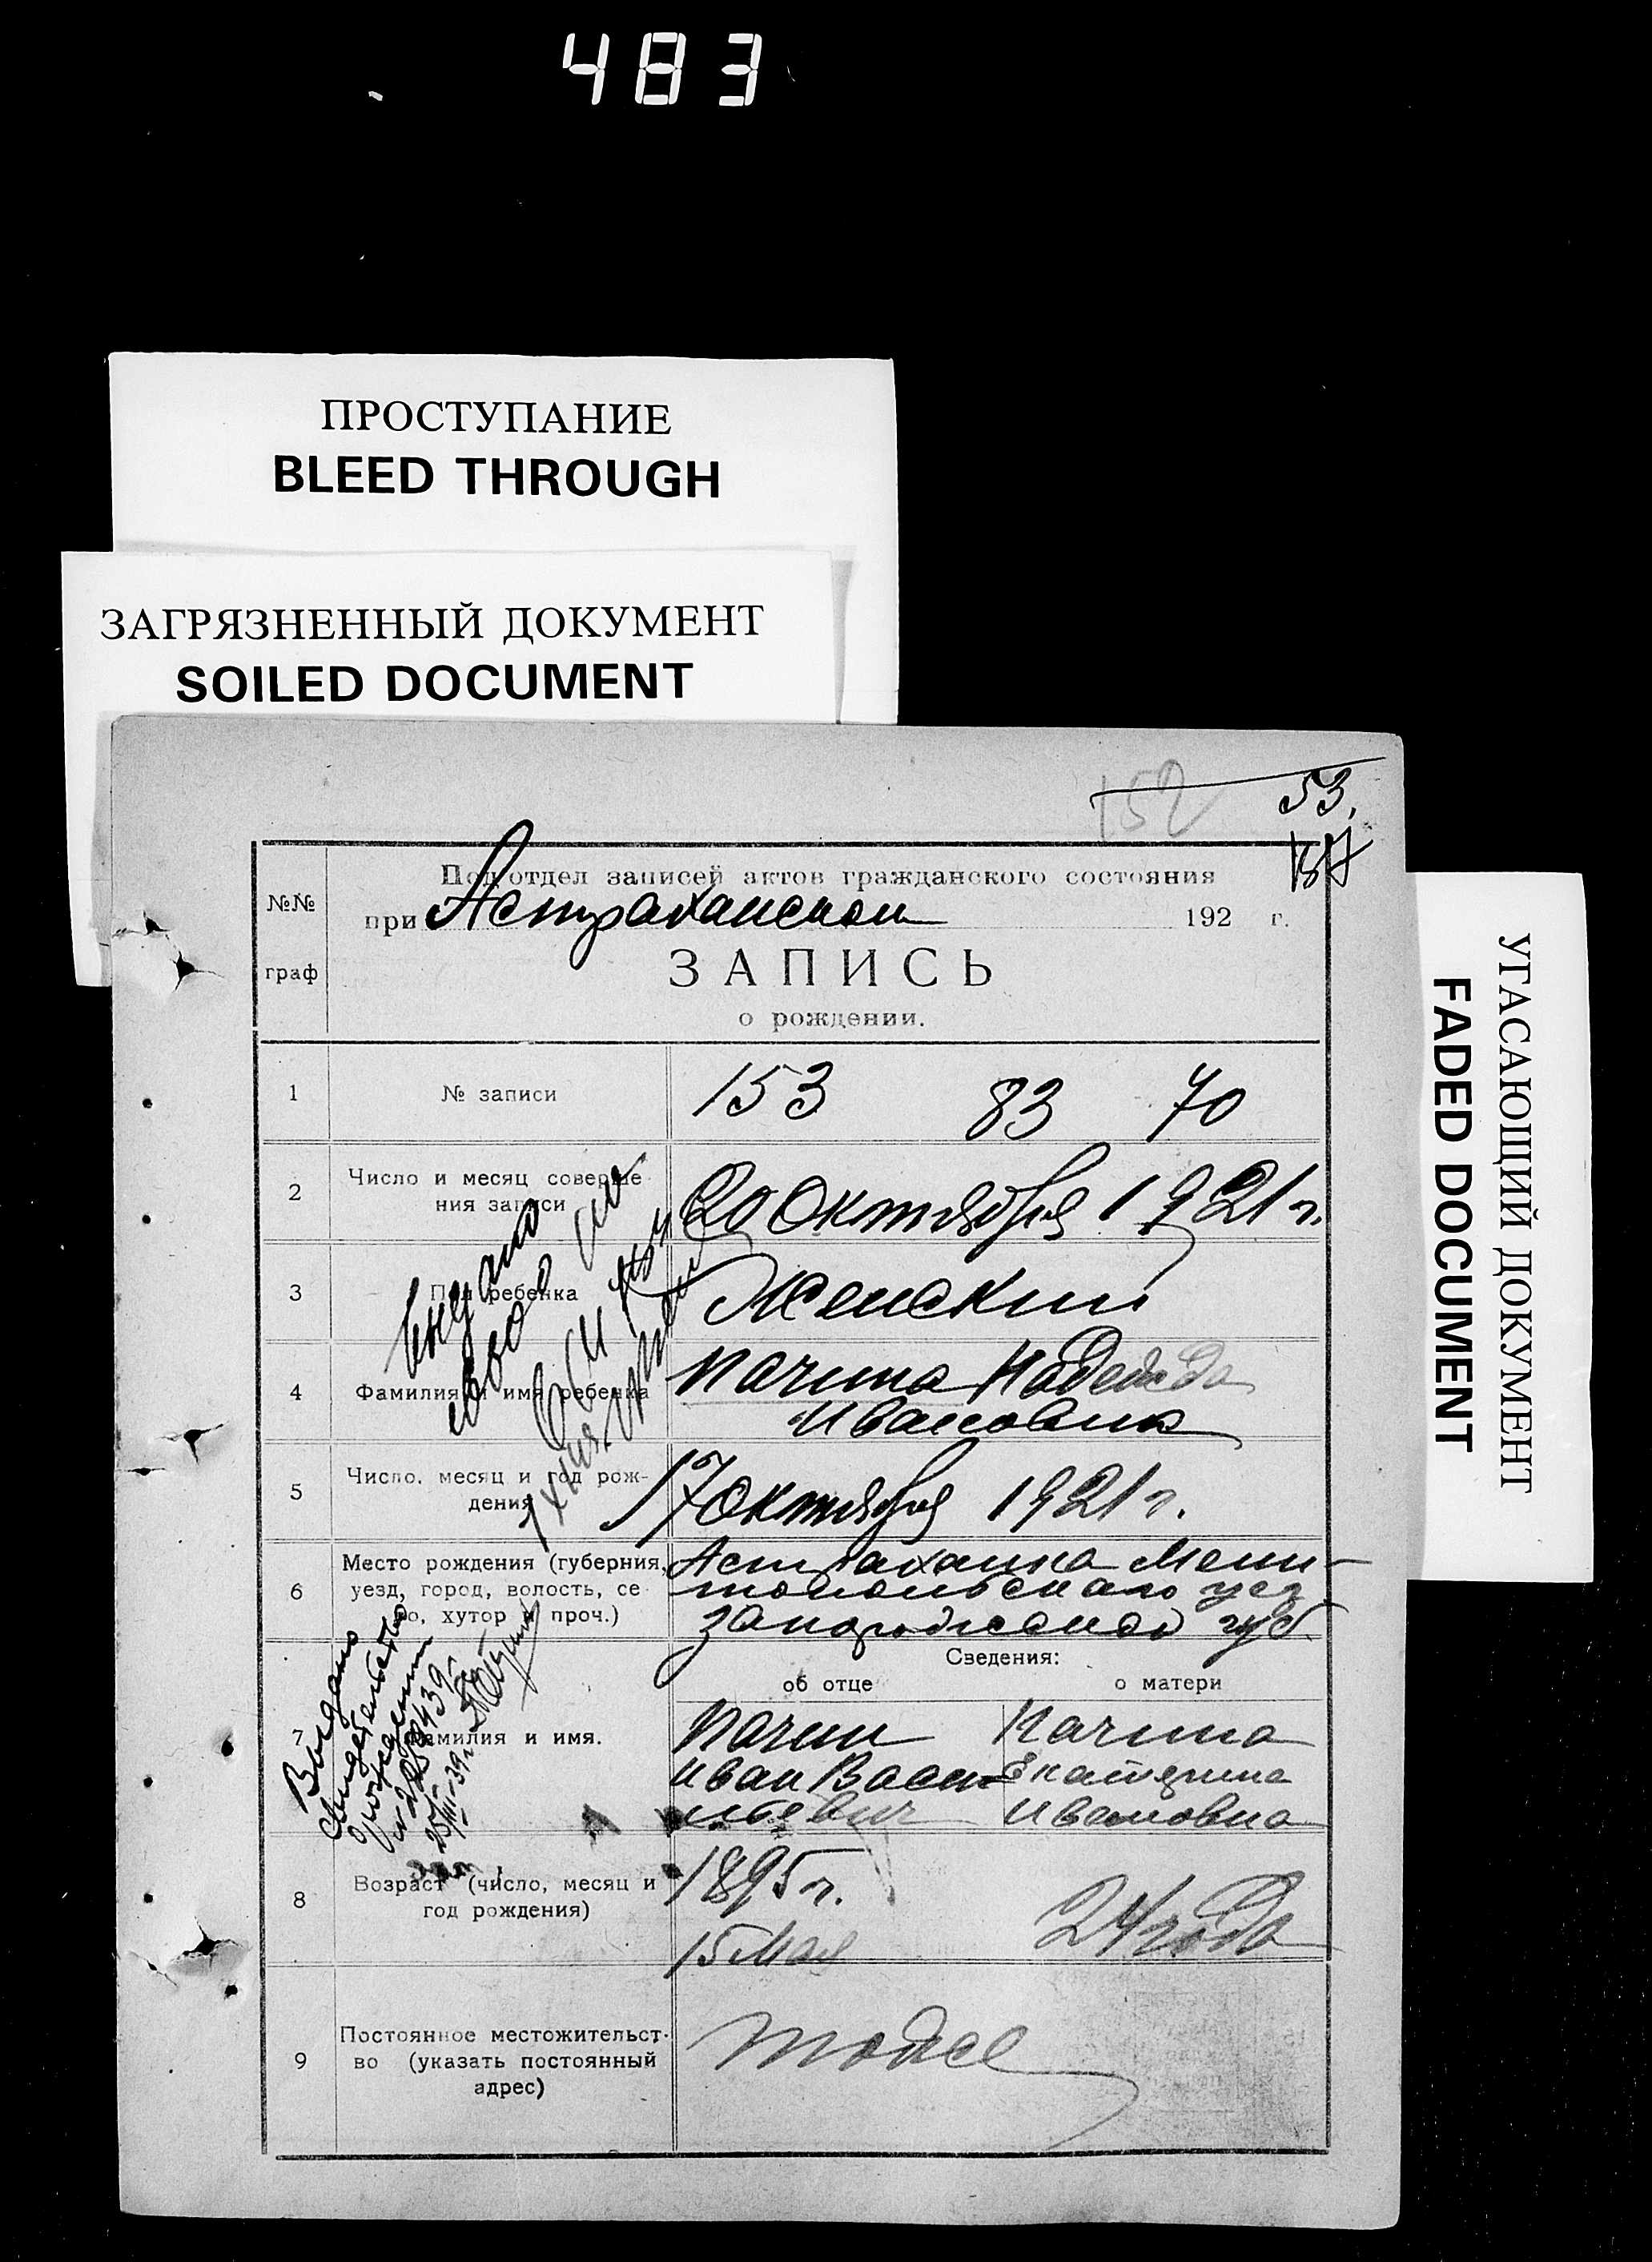 483
ПРОСТУПАНИЕ
BLEED THROUGH
ЗАГРЯЗНЕННЫЙ ДОКУМЕНТ
SOILED DOCUMENT
УГАСАЮЩИЙ ДОКУМЕНТ
FADED DOCUMENT
152 53.
№№
граф
Под‘отдел записей актов гражданского состояния
при Астраханском 192 г.
ЗАПИСЬ
о рождении.
1 № записи 153 83 70
2 Число и месяц соверше-
ния записи 20 Октября 1921 г.
3 Пол ребенка Женский
4 Фамилия и имя ребенка Качина Надежда
Ивановна
5 Число, месяц и год рож-
дения 17 Октября 1921 г.
6 Место рождения (губерния,
уезд, город, волость, се-
ло, хутор и проч.)
Астраханка Мели-
топольскаго уез.
Запорожской губ.
Сведения:
об отце о матери
7 Фамилия и имя.
Качин
Иван Васи-
льевич
Качина
Екатерина
Ивановна
8 Возраст (число, месяц и
год рождения)
1895 г.
15 Мая
24 года
9 Постоянное местожительст-
во (указать постоянный
адрес)
тоже
Выдано
свидетельство
о рождении